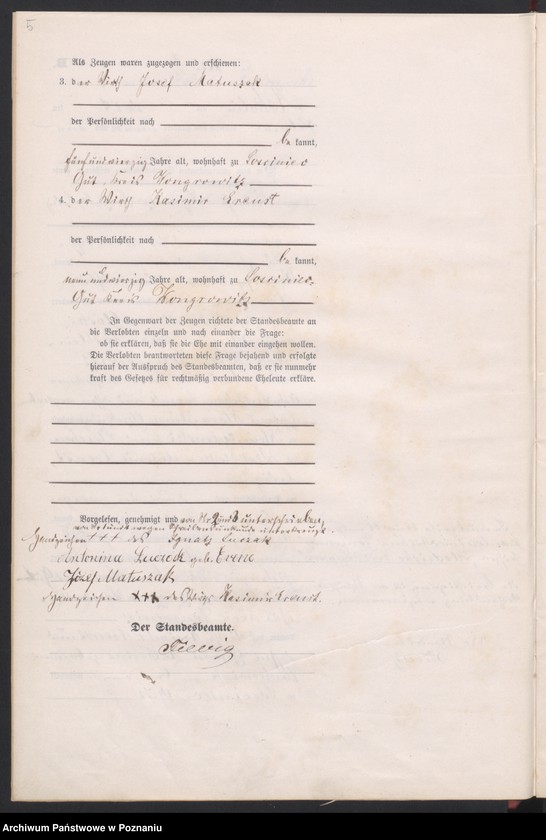 5
Als Zeugen waren zugezogen und erschienen:
3. der Wirth Josef Matuszak
der Persönlichkeit nach
be kannt,
fünfundvierzig Jahre alt, wohnhaft zu
Gut, Kreis Wongrowitz
4. der Wirth Kasimir
der Persönlichkeit nach
be kannt,
neunundvierzig Jahre alt, wohnhaft zu
Gut Kreis Wongrowitz
In Gegenwart der Zeugen richtete der Standesbeamte an
die Verlobten einzeln und nach einander die Frage:
ob sie erklären, daß sie die Ehe mit einander eingehen wollen.
Die Verlobten beantworteten diese Frage bejahend und erfolgte
hierauf der Ausspruch des Standesbeamten, daß er sie nunmehr
kraft des Gesetzes für rechtmäßig verbundene Eheleute erkläre.
Vorgelesen, genehmigt und von Nr 2 und 3 unterschrieben,
von 1 und 4 wegen Schreibensunkunde unterkreuzt.
Handzeichen +++ des Ignatz
Antonina geb.
Józef Matuszak
Handzeichen +++ des Wirths Kasimir
Der Standesbeamte.
Archiwum Państwowe w Poznaniu